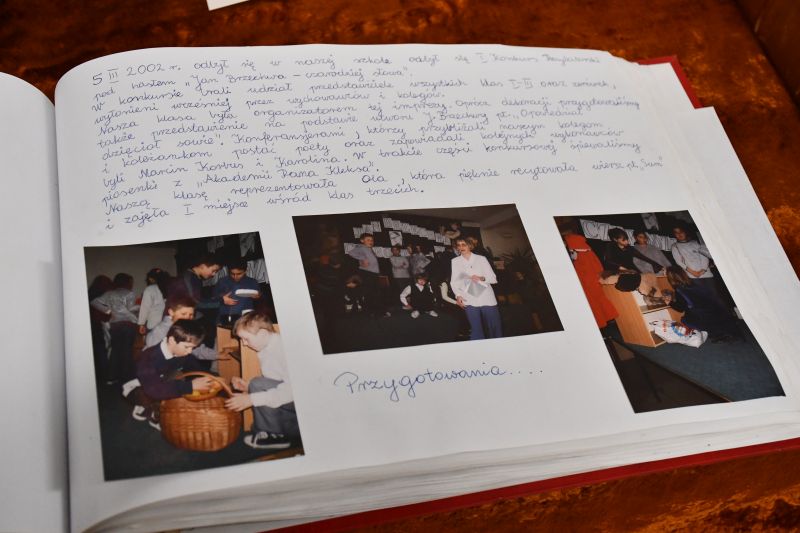 5 III 2002 r. odbył się w naszej szkole odbył się I Konkurs Recytatorski
pod hasłem „Jan Brzechwa – czarodziej słowa".
W konkursie brali udział przedstawiciele wszystkich klas I-III oraz zerówek,
wyłonieni wcześniej przez wychowawców i kolegów.
Nasza klasa była organizatorem tej imprezy. Oprócz dekoracji przygotowaliśmy
także przedstawienie na podstawie utworu J. Brzechwy pt. „Opowiedział
dzięcioł sowie". Konferansjerami, którzy przybliżali naszym kolegom
i koleżankom postać poety oraz zapowiadali kolejnych wykonawców
byli Marcin i Karolina. W trakcie części konkursowej śpiewaliśmy
piosenki z „Akademii Pana Kleksa".
Naszą klasę reprezentowała Ola, która pięknie recytowała wiersz pt. „Sum"
i zajęła I miejsce wśród klas trzecich.
Przygotowania....